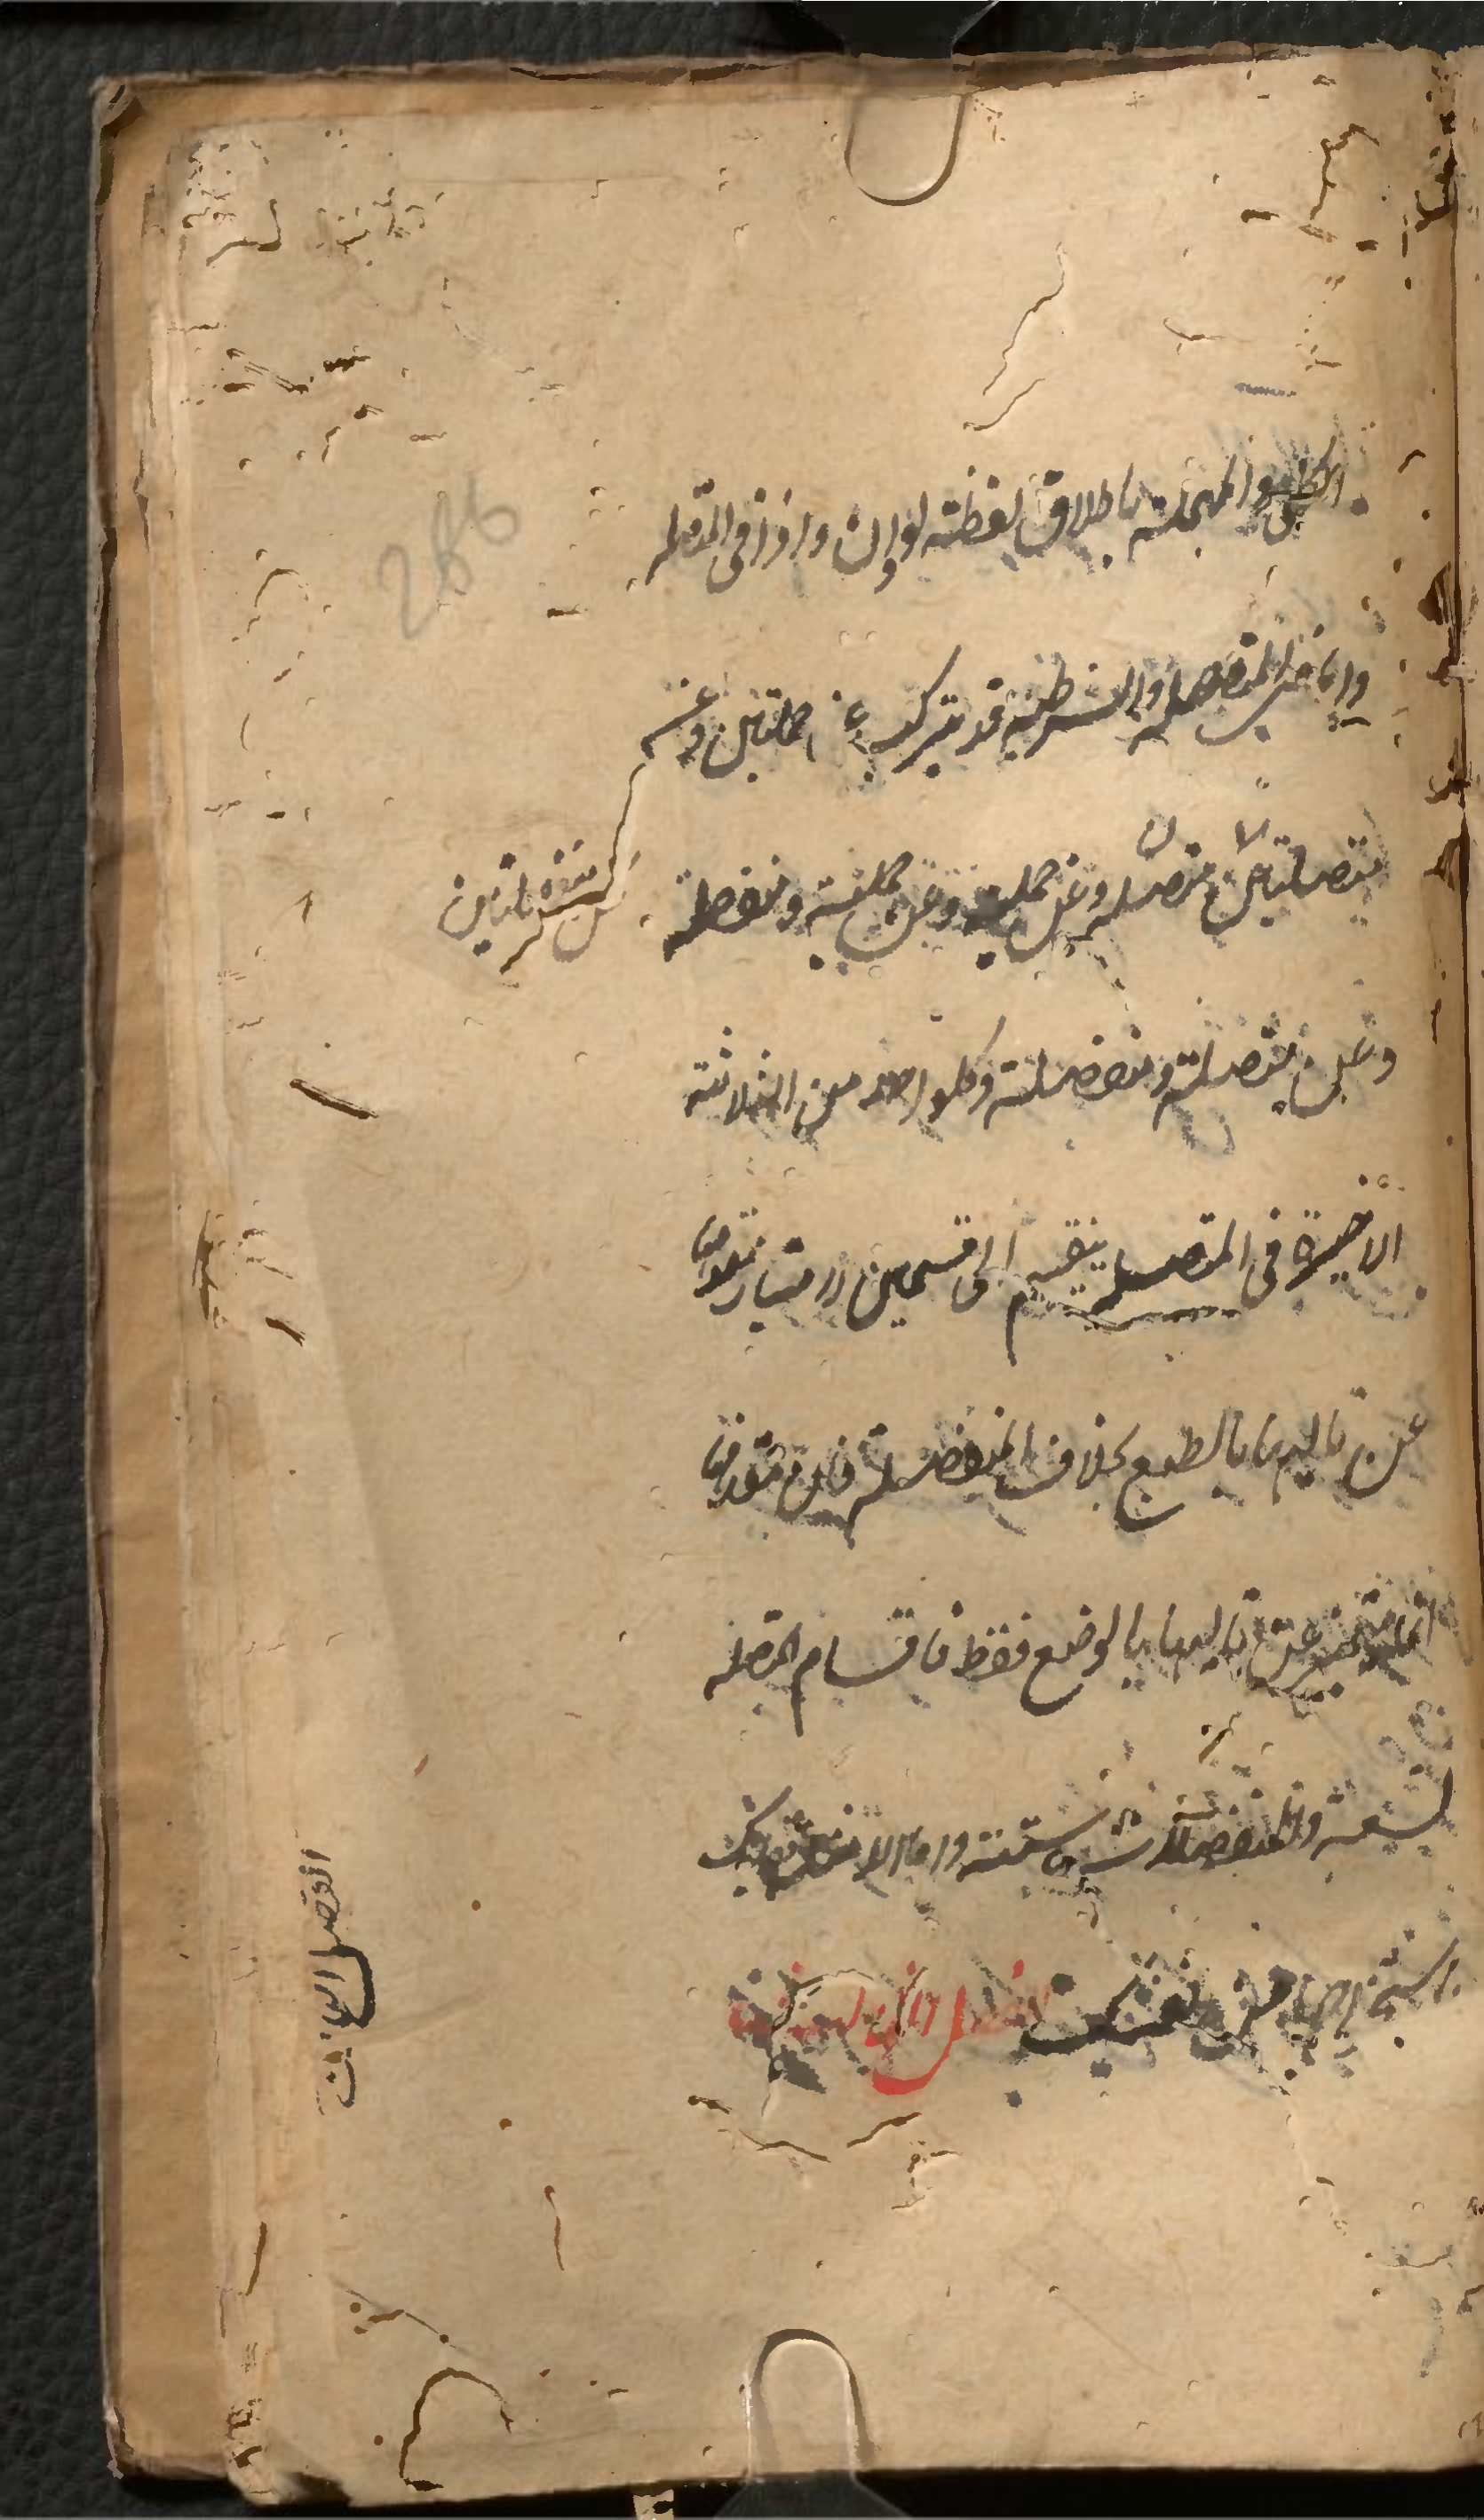 والمهملة باطلاق لفظة لو وان واذا فى المتصلة
واما فى المنفصلة والشرطية قد يتركب عن حمليتين وعن
متصلتين وعن حملية ومتصلة وعن حملية ومنفصلة
عن منفصلتين
وعن متصلة ومنفصلة وكل واحد من الثلاثة
الاخيرة فى المتصلة ينقسم الى قسمين لامتياز مقدمها
عن تاليها بالطبع بخلاف المنفصلة فان مقدمها
انما يتميز عن تاليها بالوضع فقط فاقسام المتصلة
تسعة والمنفصلة ستة واما الامثلة فعليك
باستخراجها من نفسك الفصل الثالث
الفصل الثالث
286